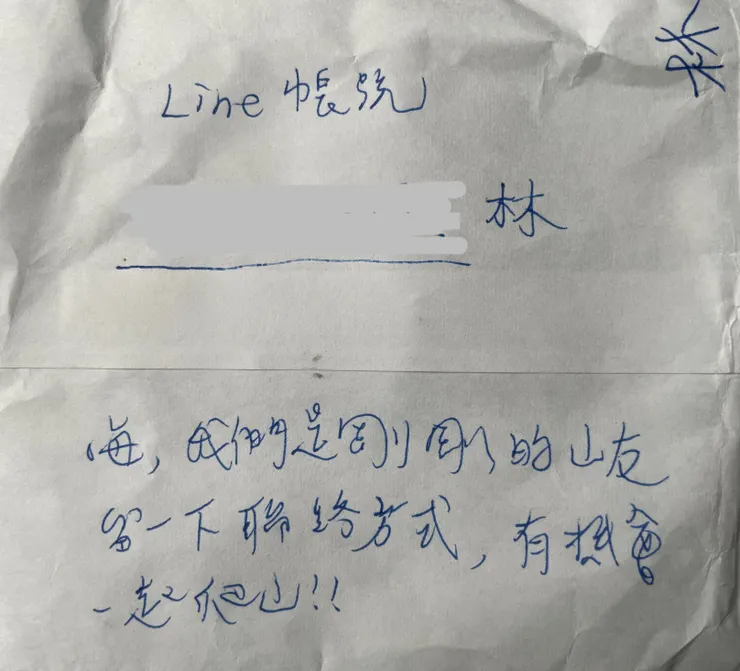 Line 帳號
林
嗨,我們是剛剛的山友
留一下聯絡方式,有機會
一起爬山!!